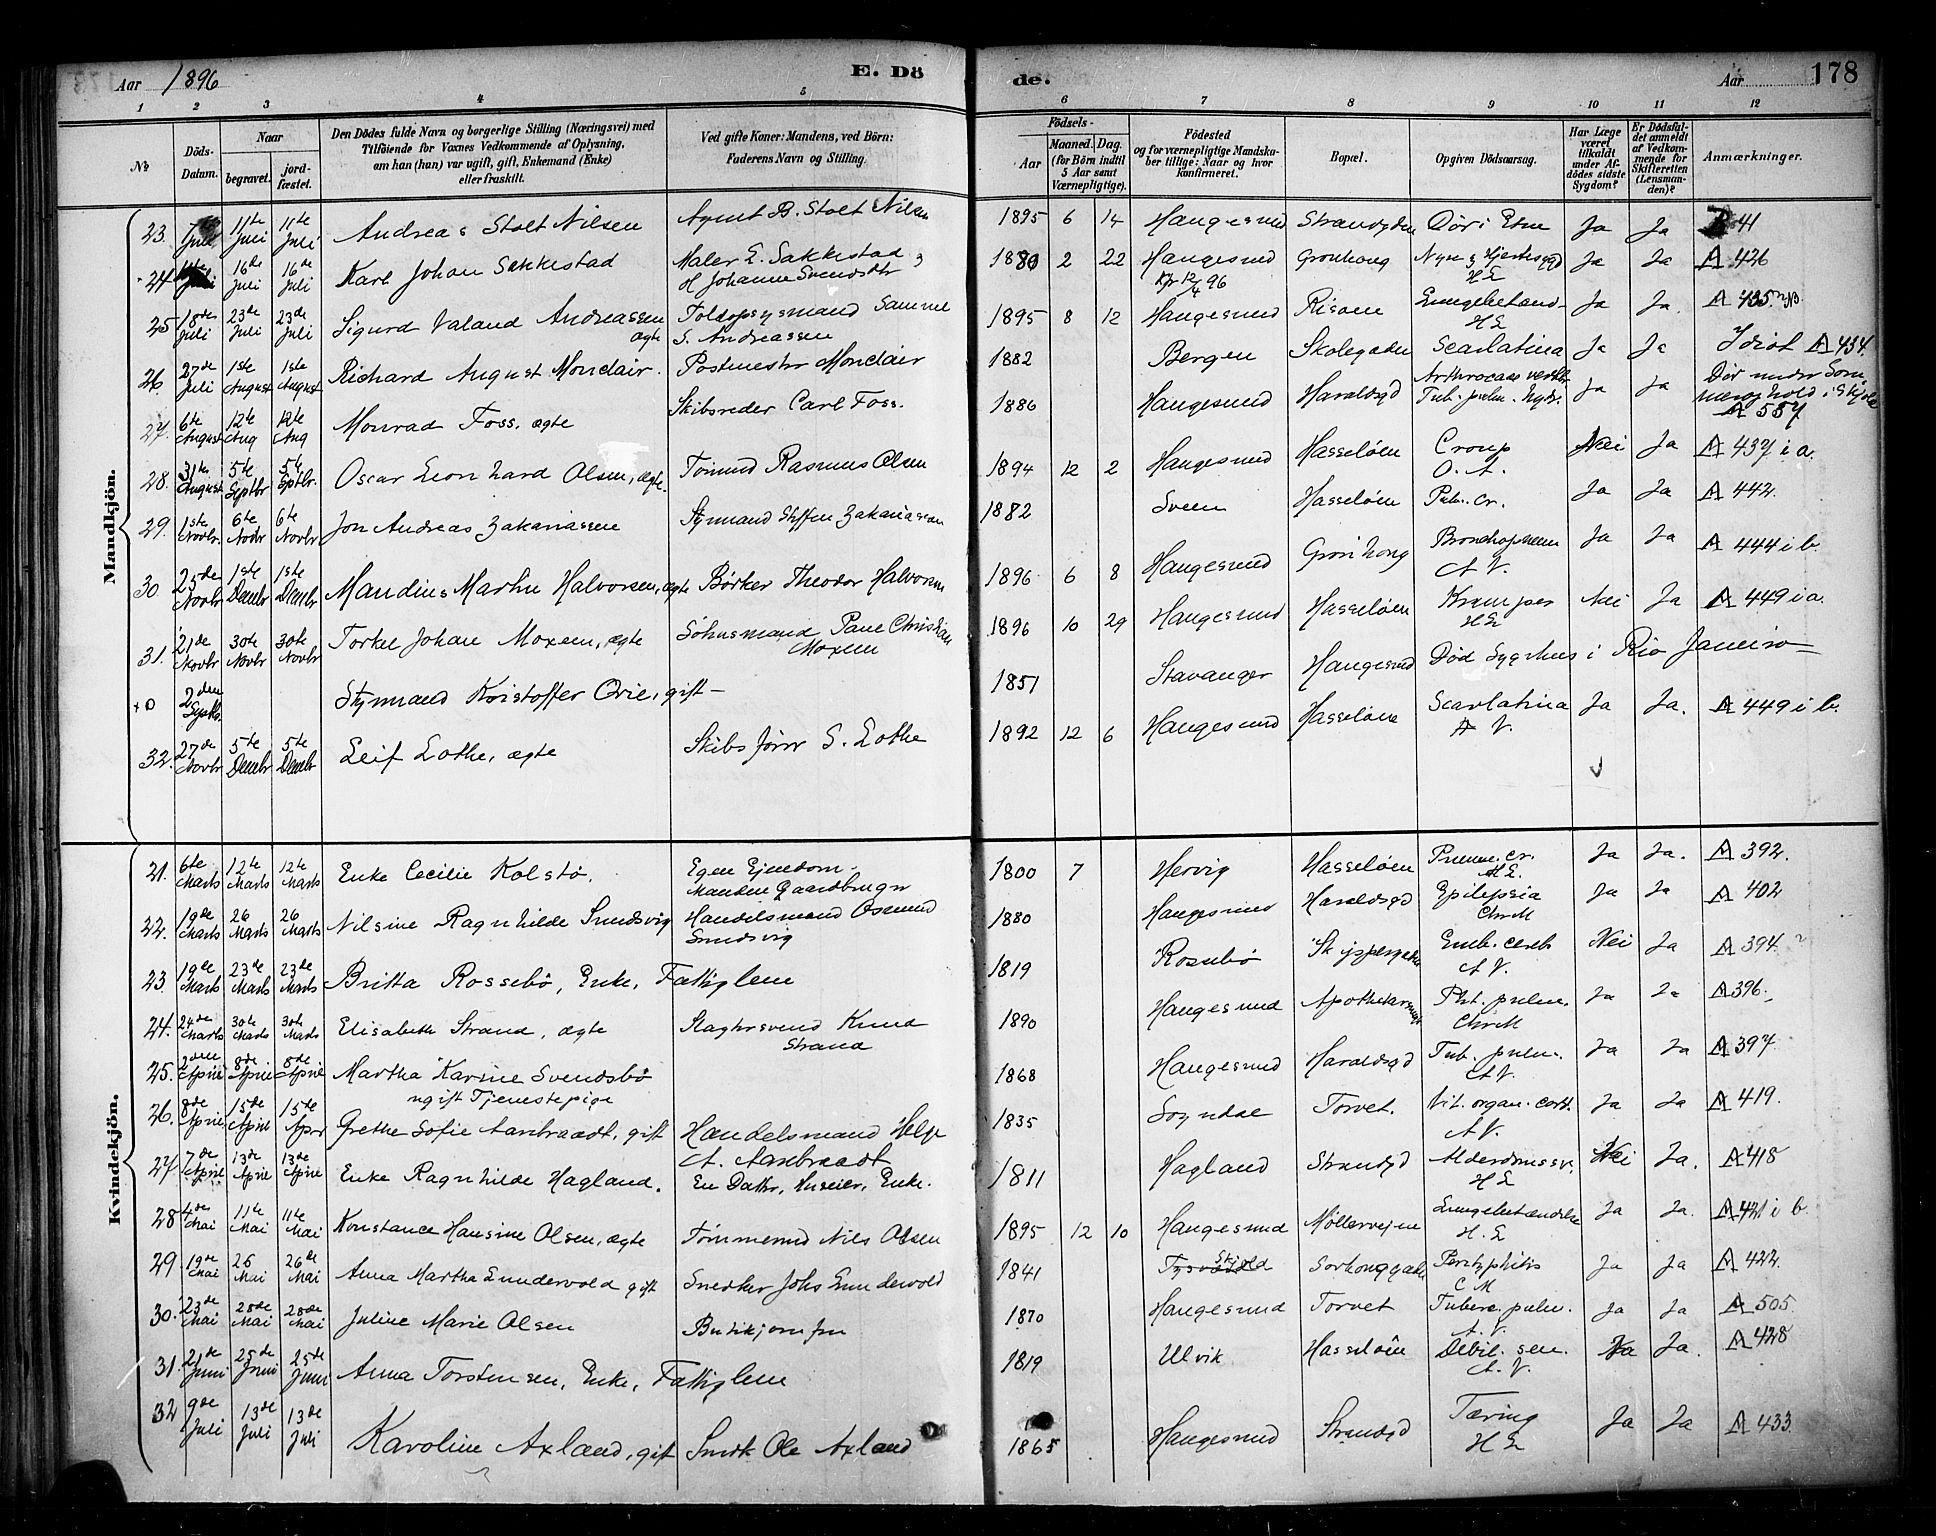 Aar 1896
E. Dö
de.
Aar
178
1 2 3 4 5 6 7 8 9 10 11 12
No
Döds-Datum.
Naar
begravet.
jord-fæstet.
Den Dödes fulde Navn og borgerlige Stilling (Næringsvei) med
Tilföiende for Voxnes Vedkommende af Oplysning,
om han (hun) var ugift, gift, Enkemand (Enke)
eller fraskilt.
Ved gifte Koner: Mandens, ved Börn:
Faderens Navn og Stilling.
Födsels-
Aar
Maaned. Dag.
(for Börn indtil
5 Aar samt
Værnepligtige).
Födested
og for værnepligtige Mandska-
ber tillige: Naar og hvor
konfirmeret.
Bopæl.
Opgiven Dödsaarsag.
Har Læge
været
tilkaldt
under Af-
dödes sidste
Sygdom?
Er Dödsfal-
det anmeldt
af Vedkom-
mende for
Skifteretten
(Lensman-
den)?
Anmærkninger.
Mandkjön.
23. Juli 11te Juli 11te Juli Andreas Stolt Nilsen Agent B. Stolt Nilsen 1895 6 14 Haugesund Strandgden Død i Etne Ja Ja 41
24 Juli 16de Juli 16de Juli Karl Johan Sakkestad Maler E. Sakkestad og H Johanne Svendsdtr 1880 2 22 Haugesund Kfr 12/4 96 Gronhoug Nyre og Hjertesygd HE Ja Ja A 426
25 18de Juli 23de Juli 23de Juli Sigurd Valand Andreassen ægte Toldopsynsmand Samuel S. Andreassen 1895 8 12 Haugesund Risøen Lungebetænd- HE Ja Ja. A 435
26. 27de Juli 1ste August 1ste August Richard August Monclair. Postmester Monclair 1882 Bergen Skolegaden Scarlatina Ja Ja Idiot A 434.
27. 6te August 12te Aug 12te Aug Monrad Foss, ægte Skibsreder Carl Foss. 1886 Haugesund Haraldsgd Tub. pulm. Ja Ja Dør under Som- A 587
28. 31te August 5te Septbr 5te Septbr. Oscar Leonhard Olsen, ægte. Tømmd Rasmus Olsen 1894 12 2 Haugesund Hasseløen Croup O. A. Nei Ja A 437 i a.
29. 1ste Novbr. 6te Novbr 6te Novbr Jon Andreas Zakariassen Styrmand Steffen Zakariassen 1882 Sveen Hasseløen Ja Ja A 442.
30. 25de Novbr 1ste Decmbr 1ste Decmbr Maudius Martin Halvorsen, ægte Bødker Theodor Halvorsen 1896 6 8 Haugesund Grønhoug Bronchopneum A V. Ja Ja A 444 i b.
31. 21de Novbr 30te Novbr 30te Novbr Torkel Johan Moxem, ægte Søhusmand Paul Christian Moxem 1896 10 29 Haugesund Hasseløen Kramper HE Nei Ja A 449 i a.
+0 2den Styrmand Kristoffer Qvie, gift - 1851 Stavanger Haugesund Død Sygehus i Rio Janeiro
32. 27de Novbr 5te Decmbr 5te Decmbr Leif Lothe, ægte Skibsfører S. Lothe 1892 12 6 Haugesund Hasseløen Scarlatina A V. Ja Ja. A 449 i b.
Kvindekjön.
21. 6te Marts 12te Marts 12te Marts Enke Cecilie Kolstø. Egen Ejendom. Manden Gaardbruger 1800 7 Hervig Hasseløen Pneum. cr. HE. Ja Ja. A 392.
22. 19de Marts 26 Marts 26 Marts Nilsine Ragnhilde Sundsvig Handelsmand Osmund Sundsvig 1880 Haugesund Haraldsgd Epilepsia ChrM Ja Ja A 402
23. 19de Marts 23de Marts 23de Marts Britta Rossebø, Enke, Fattiglem 1819 Rossebø Skippergaden Emb. cereb A V. Nei Ja A 394.
24. 24de Marts 30te Marts 30te Marts Elisabeth Strand, ægte Slagtersvend Knud Strand 1890 Haugesund Pht. pulm. ChrM Ja Ja A 396.
25. 2den April 8de April 8de April Martha Karine Svendsbø ugift Tjenestepige 1868 Haugesund Haraldsgd Tub. pulm. A V. Ja Ja A 397.
26. 8de April 15de April 15de Apr Grethe Sofie Aanbraadt, gift Handelsmand Helge A. Aanbraadt 1835 Sogndal Torvet. Vit. organ. cord. A V. Ja Ja A 419.
27 7de April 13de April 13de April Enke Ragnhilde Hagland. En Datter, Huseier, Enke. 1811 Hagland Strandgd Alderdomssv. HE Nei Ja. A 418
28 4de Mai 11te Mai 11te Mai Konstance Hansine Olsen, ægte Tømmermd Nils Olsen 1895 12 10 Haugesund Møllervejen Lungebetændelse H. E Ja Ja. A 421 i b.
29 19de Mai 26 Mai 26de Mai Anna Martha Lundervold gift Snedker Johs Lundervold 1841 Skjold Sørhouggade Perityphlitis C M Ja Ja A 422.
30. 23de Mai 28de Mai 28de Mai Juline Marie Olsen Butikjomfru 1870 Haugesund Torvet Tuberc. pulm. A. V. Ja Ja A 505.
31. 21de Juni 25de Juni 25de Juni Anna Torstensen, Enke, Fattiglem 1819 Ulvik Hasseløen Debil. sen. A. V. Ja Ja. A 428
32 9de Juli 13de Juli 13de Juli Karoline Axland, gift Smed Ole Axland 1865 Haugesund Strandgd Tæring HE Ja Ja A 433.